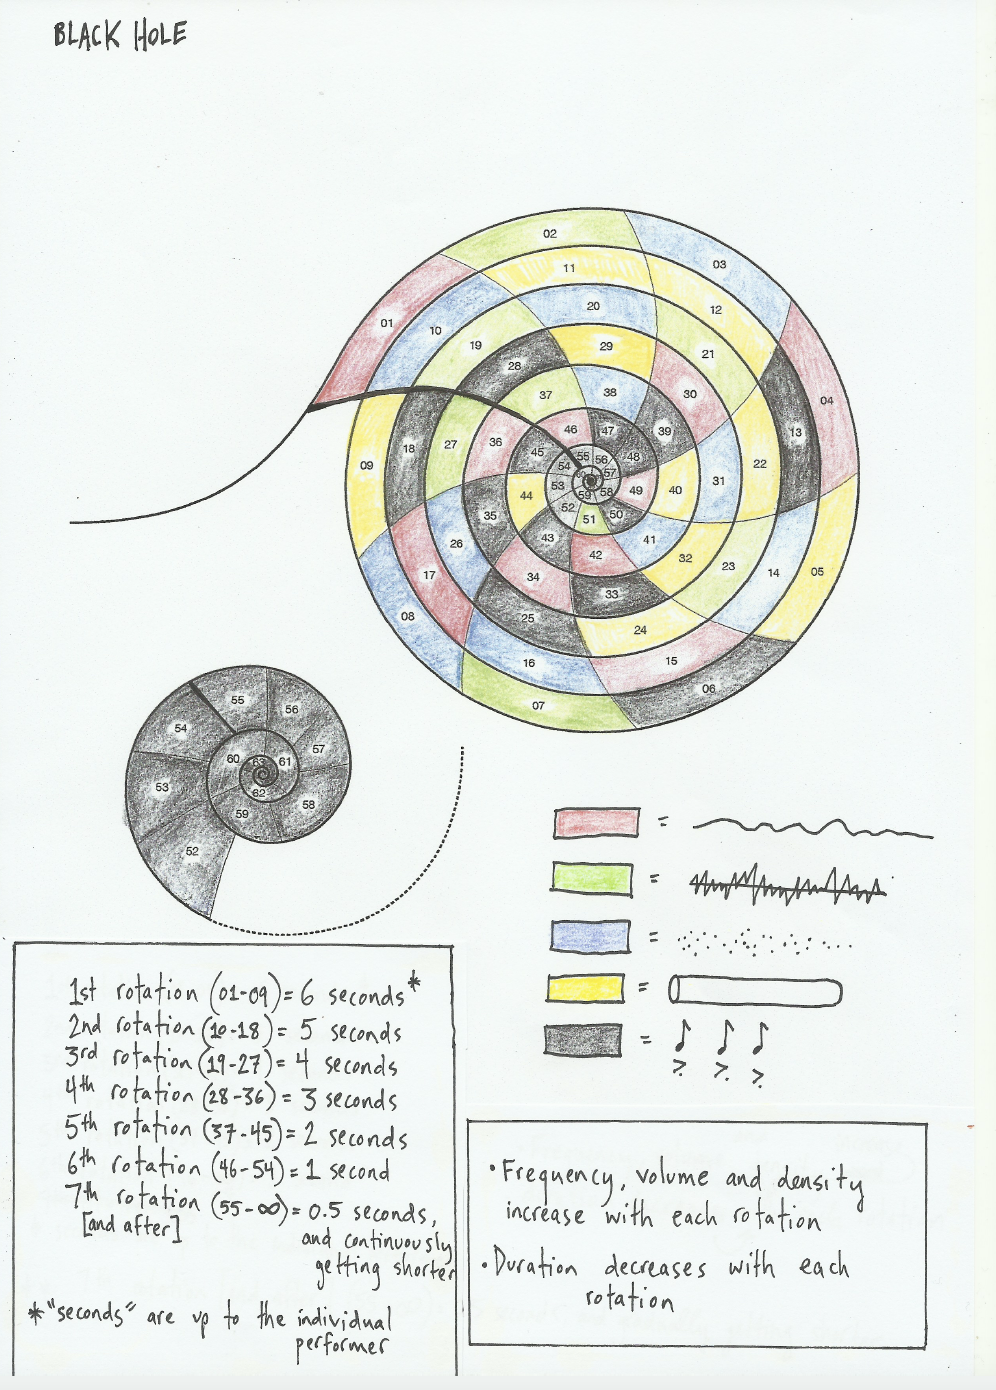 BLACK HOLE
01
02
03
04
05
06
07
08
09
10
11
12
13
14
15
16
17
18
19
20
21
22
23
24
25
26
27
28
29
30
31
32
33
34
35
36
37
38
39
40
41
42
43
44
45
46
47
48
49
50
51
52
53
54
55
56
57
58
59
60
52
53
54
55
56
57
58
59
60
61
62
63
=
=
=
=
=
1st rotation (01-09) = 6 seconds*
2nd rotation (10-18) = 5 seconds
3rd rotation (19-27) = 4 seconds
4th rotation (28-36) = 3 seconds
5th rotation (37-45) = 2 seconds
6th rotation (46-54) = 1 second
7th rotation (55-∞) = 0.5 seconds,
[and after]
and continuously
getting shorter
*"seconds" are up to the individual
performer
•Frequency, volume and density
increase with each rotation
•Duration decreases with each
rotation